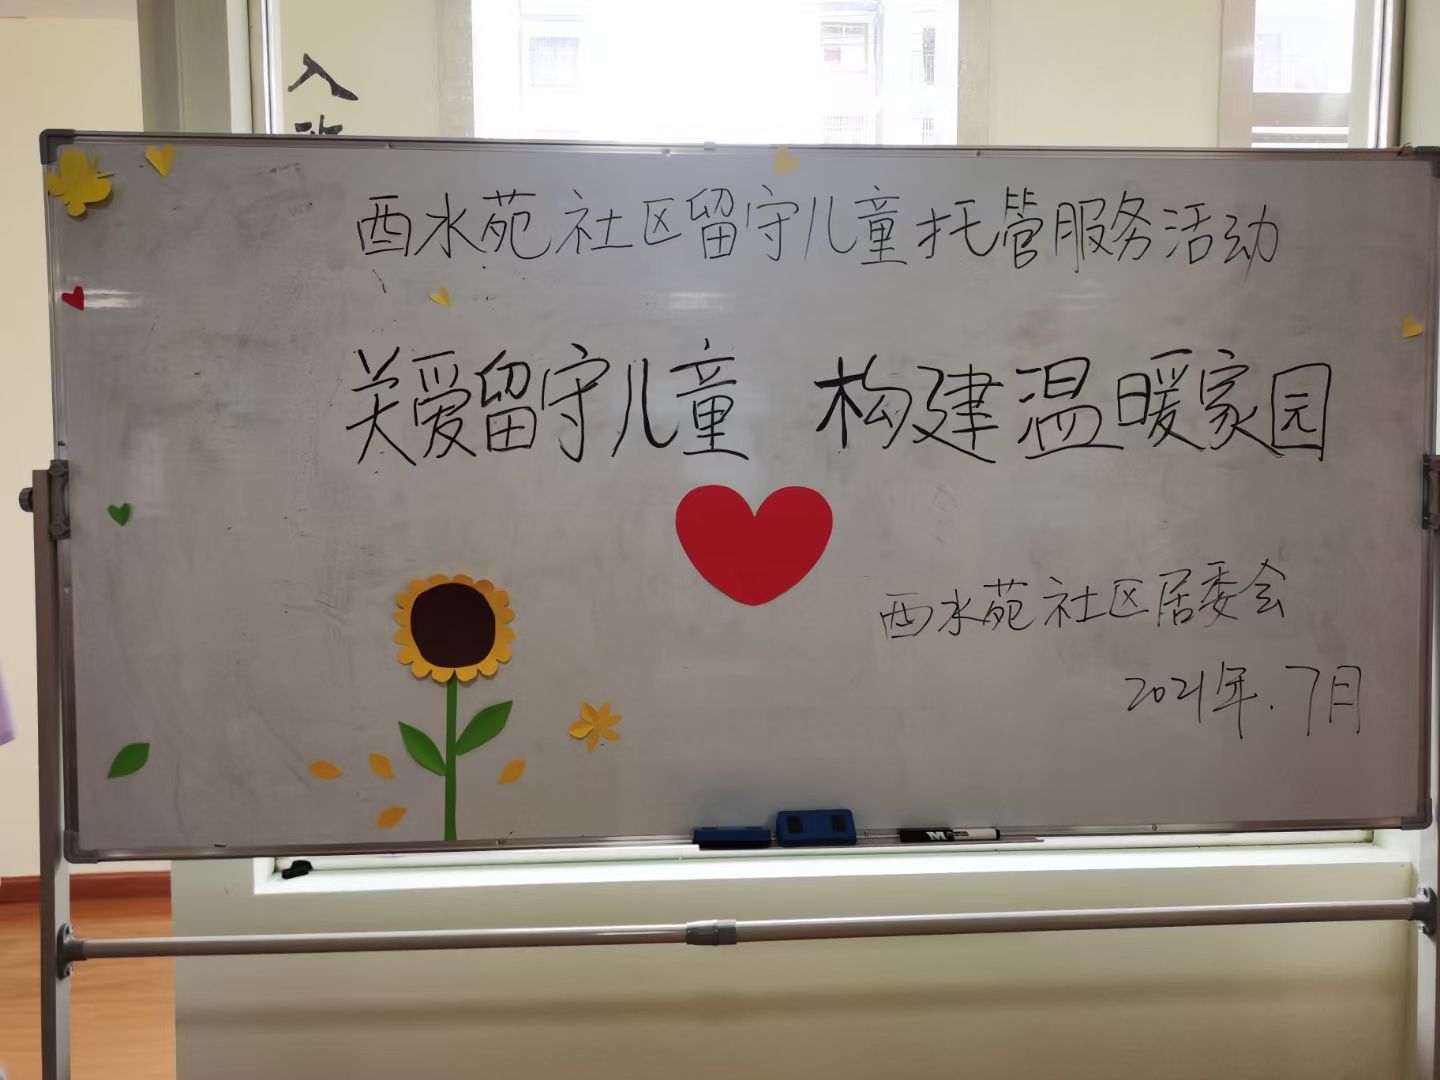 入
酉水苑社区留守儿童托管服务活动
关爱留守儿童 构建温暖家园
酉水苑社区居委会
2021年.7月
M